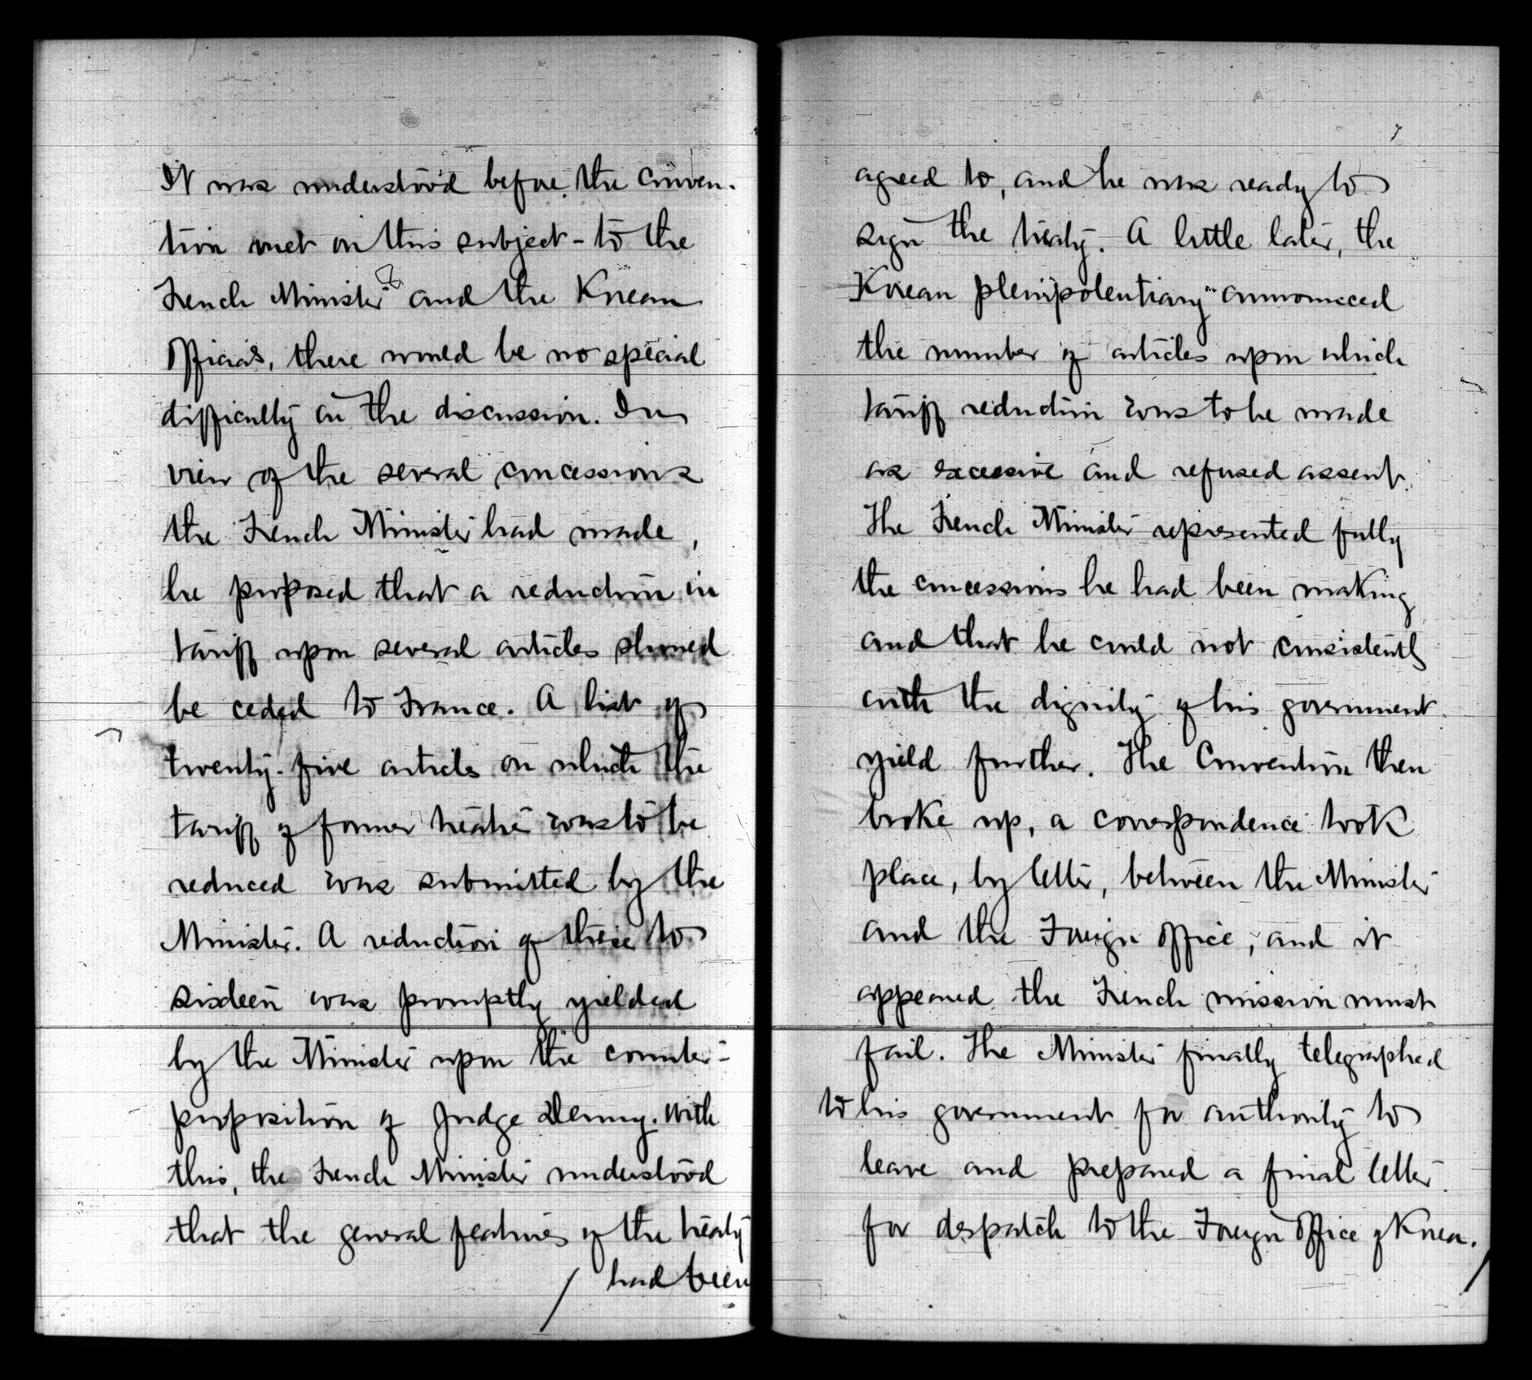 It was understood before the Conven-
tion met on this subject - to the
French Minister and the Korean
Officials, there would be no special
difficulty in the discussion. In
view of the several concessions
the French Minister had made,
he proposed that a reduction in
tariff upon several articles should
be ceded to France. A list of
twenty-five articles on which the
tariff of former treaties was to be
reduced was submitted by the
Minister. A reduction of these to
sixteen was promptly yielded
by the Minister upon the counter-
proposition of Judge Denny. With
this, the French Minister understood
that the general features of the treaty
/ had been
7
agreed to, and he was ready to
sign the treaty. A little later, the
Korean plenipotentiary announced
the number of articles upon which
tariff reduction was to be made
as excessive and refused assent.
The French Minister represented fully
the concessions he had been making
and that he could not consistently
with the dignity of his government
yield further. The Convention then
broke up, a correspondence took
place, by letter, between the Minister
and the Foreign Office, and it
appeared the French mission must
fail. The Minister finally telegraphed
to his government for authority to
leave and prepared a final letter
for despatch to the Foreign Office of Korea.
/